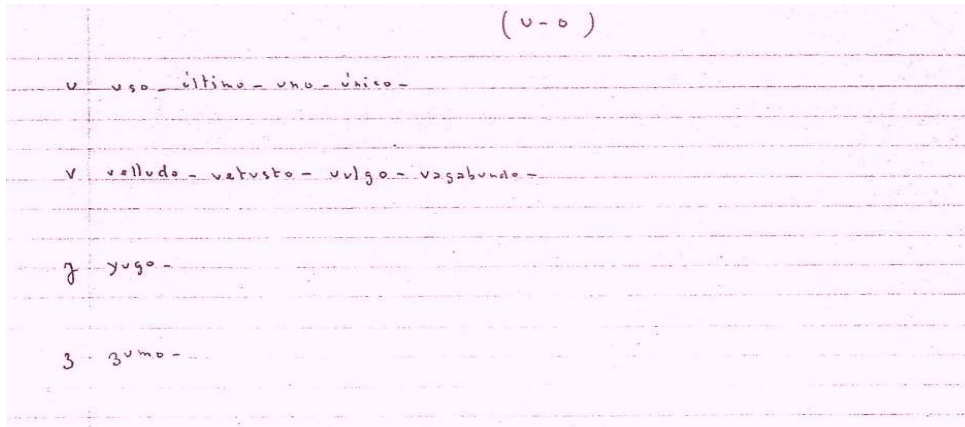 (u-o)
u uso - último - uno - único -
v velludo - vetusto - vulgo - vagabundo -
y yugo -
z zumo -